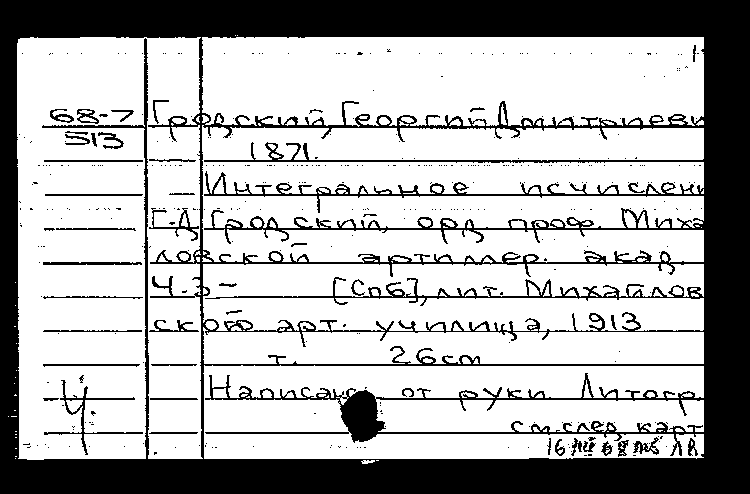 1
68-7 Гродский, Георгий Дмитриеви
513 1871.
— Интегральное исчислени
Г.Д. Гродский, орд проф. Миха
ловской артиллер. акад.
Ч.3- [Спб.], лит. Михайлов
ского арт. училища, 1913
т. 26см
Написано от руки. Литогр.
Ч. см.след. карт
16 68 ЛВ.